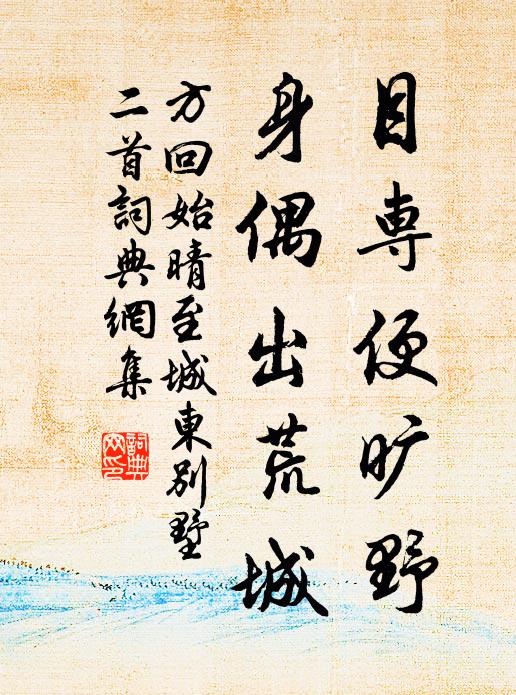 目専便旷野
身偶出荒城
方回始晴至城東别墅
二首詞典網集
詞典网印